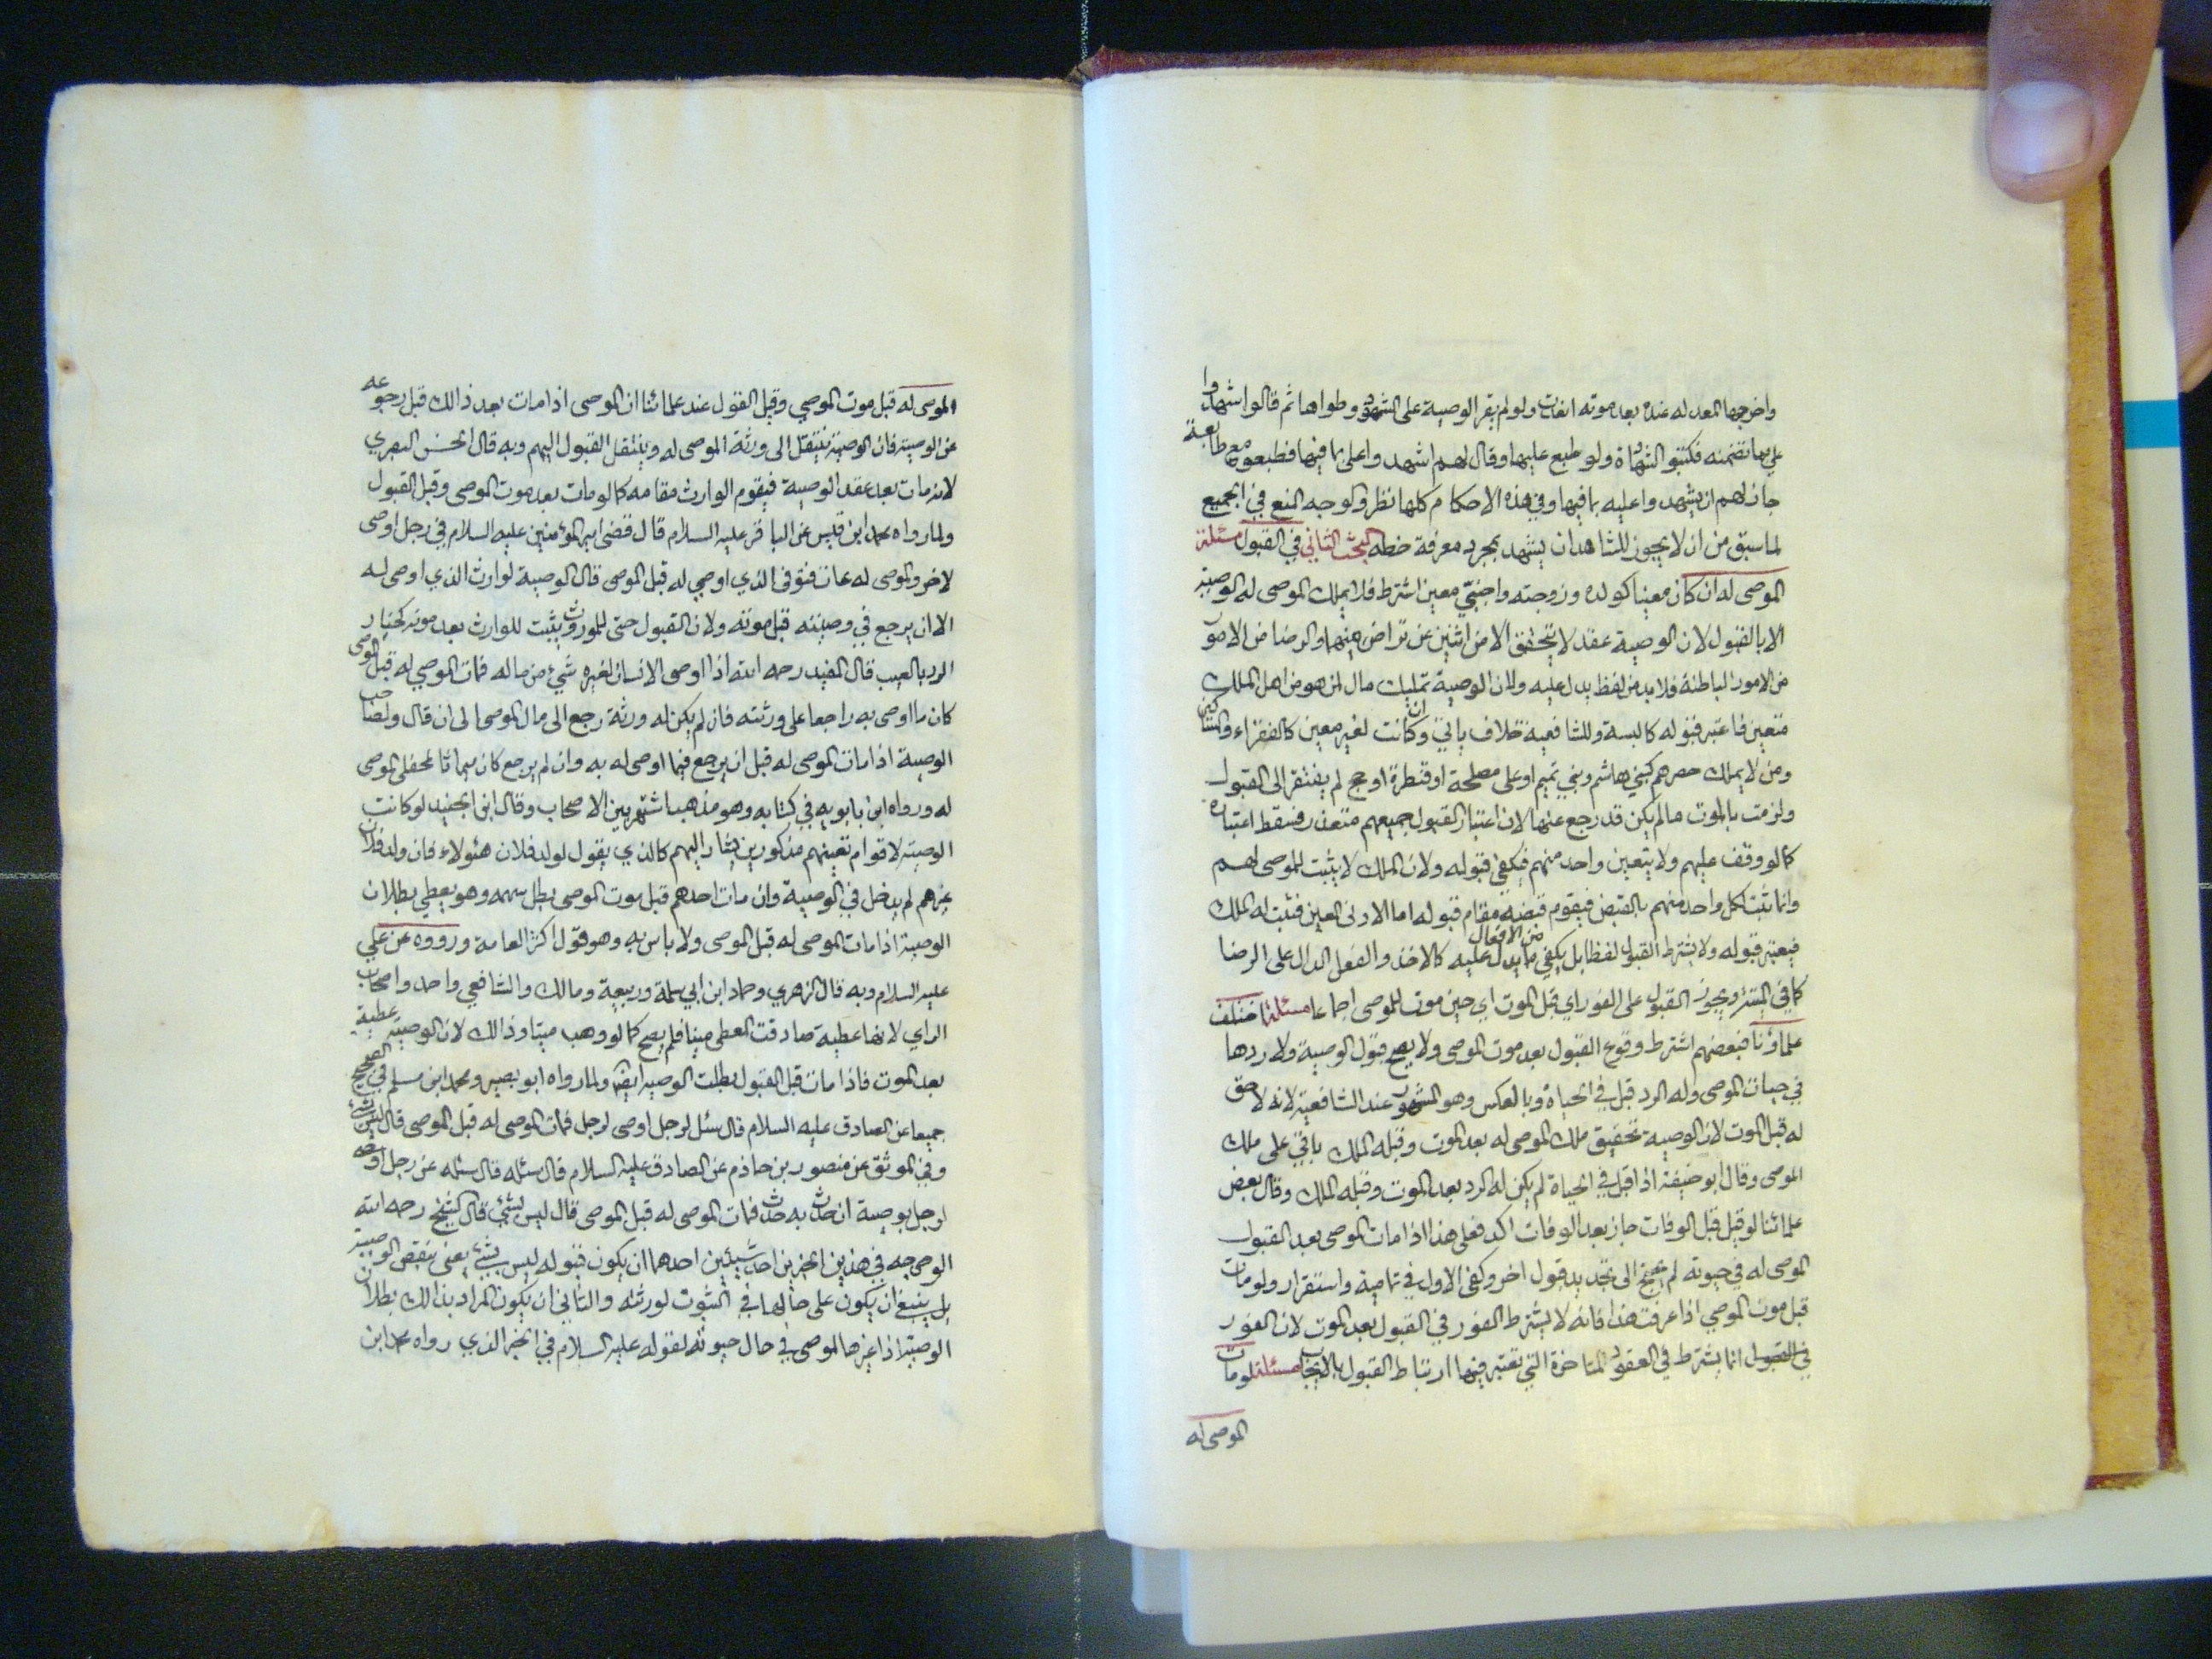 واخرجها المعدله عنده بعد موته انفات ولو لم يقر الوصية على الشهود وطواها ثم قالوا اشهدوا
على بما تضمنه فكتبوا الشهادة ولو طبع عليها وقال لهم اشهدوا على بما فيها فطبعوا مع طابعه
جاز لهم ان يشهدوا عليه بما فيها وفي هذه الاحكام كلها نظر والوجه المنع في الجميع
لما سبق من ان لا يجوز للشاهد ان يشهد بمجرد معرفة خطه البحث الثاني في القبول مسئلة
الموصى له ان كان معينا كولده وزوجته واجنبي معين اشترط فلا يملك الموصى له الوصية
الا بالقبول لان الوصية عقد لا يتحقق الا من اثنين عن تراض منهما والرضا من الامور
من الامور الباطنة فلا بد من لفظ يدل عليه ولان الوصية تمليك مال لمن هو من اهل الملك
متعين فاعتبر قبوله كالبسة وللشافعية خلاف ياتي وان كانت لغير معين كالفقراء والمساكين
ومن لا يملك حصرهم كبني هاشم وبني تميم او على مصلحة او قنطرة او حج لم يفتقر الى القبول
ولزمت بالموت ما لم يكن قد رجع عنها لان اعتبار القبول جميعهم متعذر فسقط اعتباره
كما لو وقف عليهم ولا يتعين واحد منهم فيكفى قبوله ولان الملك لا يثبت للموصى لهم
وانما ثبت لكل واحد منهم بالقبض فيقوم قبضه مقام قبوله اما الادنى العين فثبت له الملك
فيعتبر قبوله ولا يشترط القبول لفظا بل يكفى ما يدل عليه من الافعال كالاخذ والفعل الدال على الرضا
كما في البيع ويجوز القبول على الفور اي قبل الموت اي حين موت الموصى اجماعا مسئلة اختلف
علماؤنا فبعضهم اشترط وقوع القبول بعد موت الموصى ولا يصح قبول الوصية ولا ردها
في حيات الموصى وله الرد قبل في الحياة وبالعكس وهو المشهور عند الشافعية لانه لا حق
له قبل الموت لان الوصية تحقيق ملك الموصى له بعد الموت وقبله الملك باقي على ملك
الموصى وقال ابو حنيفة اذا قبل في الحياة لم يكن له الرد بعد الموت وقبله الملك وقال بعض
علمائنا لو قبل قبل الوفات جاز بعد الوفات اكد فعلى هذا اذا مات الموصى بعد القبول
الموصى له في حيوته لم يحتج الى تجديد قبول اخر وكفى الاول في تمامية واستقرار ولو مات
قبل موت الموصي اذا عرفت هذا فانه لا يشترط الفور في القبول بعد الموت لان الفور
في القبول انما يشترط في العقود المتاخرة التي تعتبر فيها ارتباط القبول بالايجاب مسئلة لو مات
الموصى له
الموصى له قبل موت الموصي وقبل القبول عند علمائنا ان الموصى اذا مات بعد ذالك قبل رجوعه
عن الوصية فان الوصية تنتقل الى ورثة الموصى له وينتقل القبول اليهم وبه قال الحسن البصري
لانه مات بعد عقد الوصية فيقوم الوارث مقامه كما لو مات بعد موت الموصى وقبل القبول
ولما رواه محمد ابن قيس عن الباقر عليه السلام قال قضى امير المؤمنين عليه السلام في رجل اوصى
لاخر والموصى له غائب فتوفى الذي اوصي له قبل الموصى قال الوصية لوارث الذي اوصى له
الا ان يرجع في وصيته قبل موته ولان القبول حتى للموروث يثبت للوارث بعد موته كخيار
الرد بالعيب قال المفيد رحمه الله اذا اوصى الانسان لغيره شيء من ماله فمات الموصى له قبل الموصى
كان ما اوصى به راجعا على ورثته فان لم يكن له ورثة رجع الى مال الموصى الى ان قال ولصاحب
الوصية اذا مات الموصى له قبل ان يرجع فيما اوصى له به وان لم يرجع كان ميراثا لمخلفى الموصى
له ورواه ابن بابويه في كتابه وهو مذهب اشتهر بين الاصحاب وقال ابن الجنيد لو كانت
الوصية لاقوام تعينهم مذكورين يشار اليهم كالذي يقول لولد فلان هئولاء فان ولد فلان
غيرهم لم يدخل في الوصية وان مات احدهم قبل موت الموصى بطل سهمه وهو يعطي بطلان
الوصية اذا مات الموصى له قبل الموصى ولا باس به وهو قول اكثر العامة ورووه عن علي
عليه السلام وبه قال الزهري وحماد ابن ابي سلمة وربيعة ومالك والشافعي واحمد واصحاب
الراي لانها عطية صادفت العطى ميتا فلم يصح كما لو وهب ميتا وذالك لان الوصية عطية
بعد الموت فاذا مات قبل القبول بطلت الوصية ايضا ولما رواه ابو بصير ومحمد ابن مسلم في الصحيح
جميعا عن الصادق عليه السلام قال سئل لرجل اوصى لرجل فمات الموصى له قبل الموصى قال ليس بشئ
وفي الموثق عن منصور بن حازم عن الصادق عليه السلام قال سئله قال سئله عن رجل اوصى
لرجل بوصية ان حدث به حدث فمات الموصى له قبل الموصى قال ليس بشئ قال الشيخ رحمه الله
الوجه في هذين الخبرين احد شيئين احدهما ان يكون قبوله ليس بشئ يعنى ينقض الوصية
بل ينبغ ان يكون على حالها في الثبوت لورثته والثاني ان يكون المراد بذالك بطلان
الوصية اذا غيرها الموصى في حال حيوته لقوله عليه السلام في الخبر الذي رواه محمد ابن